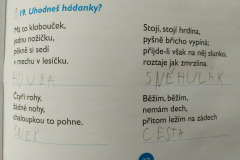 19. Uhodneš hádanky?
Má to klobouček,
jednu nožičku,
pěkně si sedí
v mechu v lesíčku.
HOUBA
Stojí, stojí hrdina,
pyšně břicho vypíná;
přijde-li však na něj slunko,
roztaje jak zmrzlina.
SNĚHULÁK
Čtyři rohy,
žádné nohy,
chaloupkou to pohne.
ŠNEK
Běžím, běžím,
nemám dech,
přitom ležím na zádech
CESTA